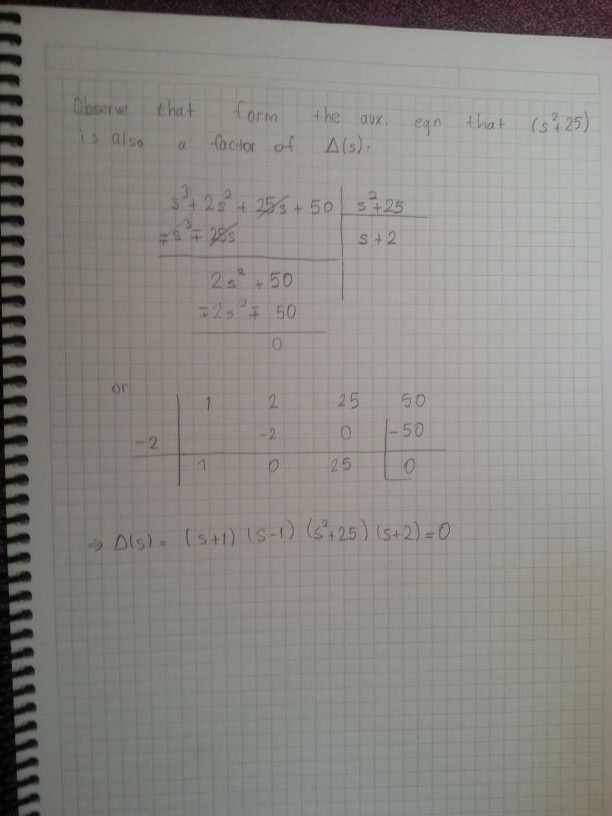 Observe that form the aux. eqn that (s²+25)
is also a factor of Δ(s).
s³ + 2s² + 25s + 50 | s²+25
∓s³ ∓ 25s | s+2
2s² + 50
∓2s² ∓ 50
0
or
1 2 25 50
-2 | -2 0 -50
1 0 25 0
⇒ Δ(s) = (s+1) (s-1) (s²+25) (s+2) = 0